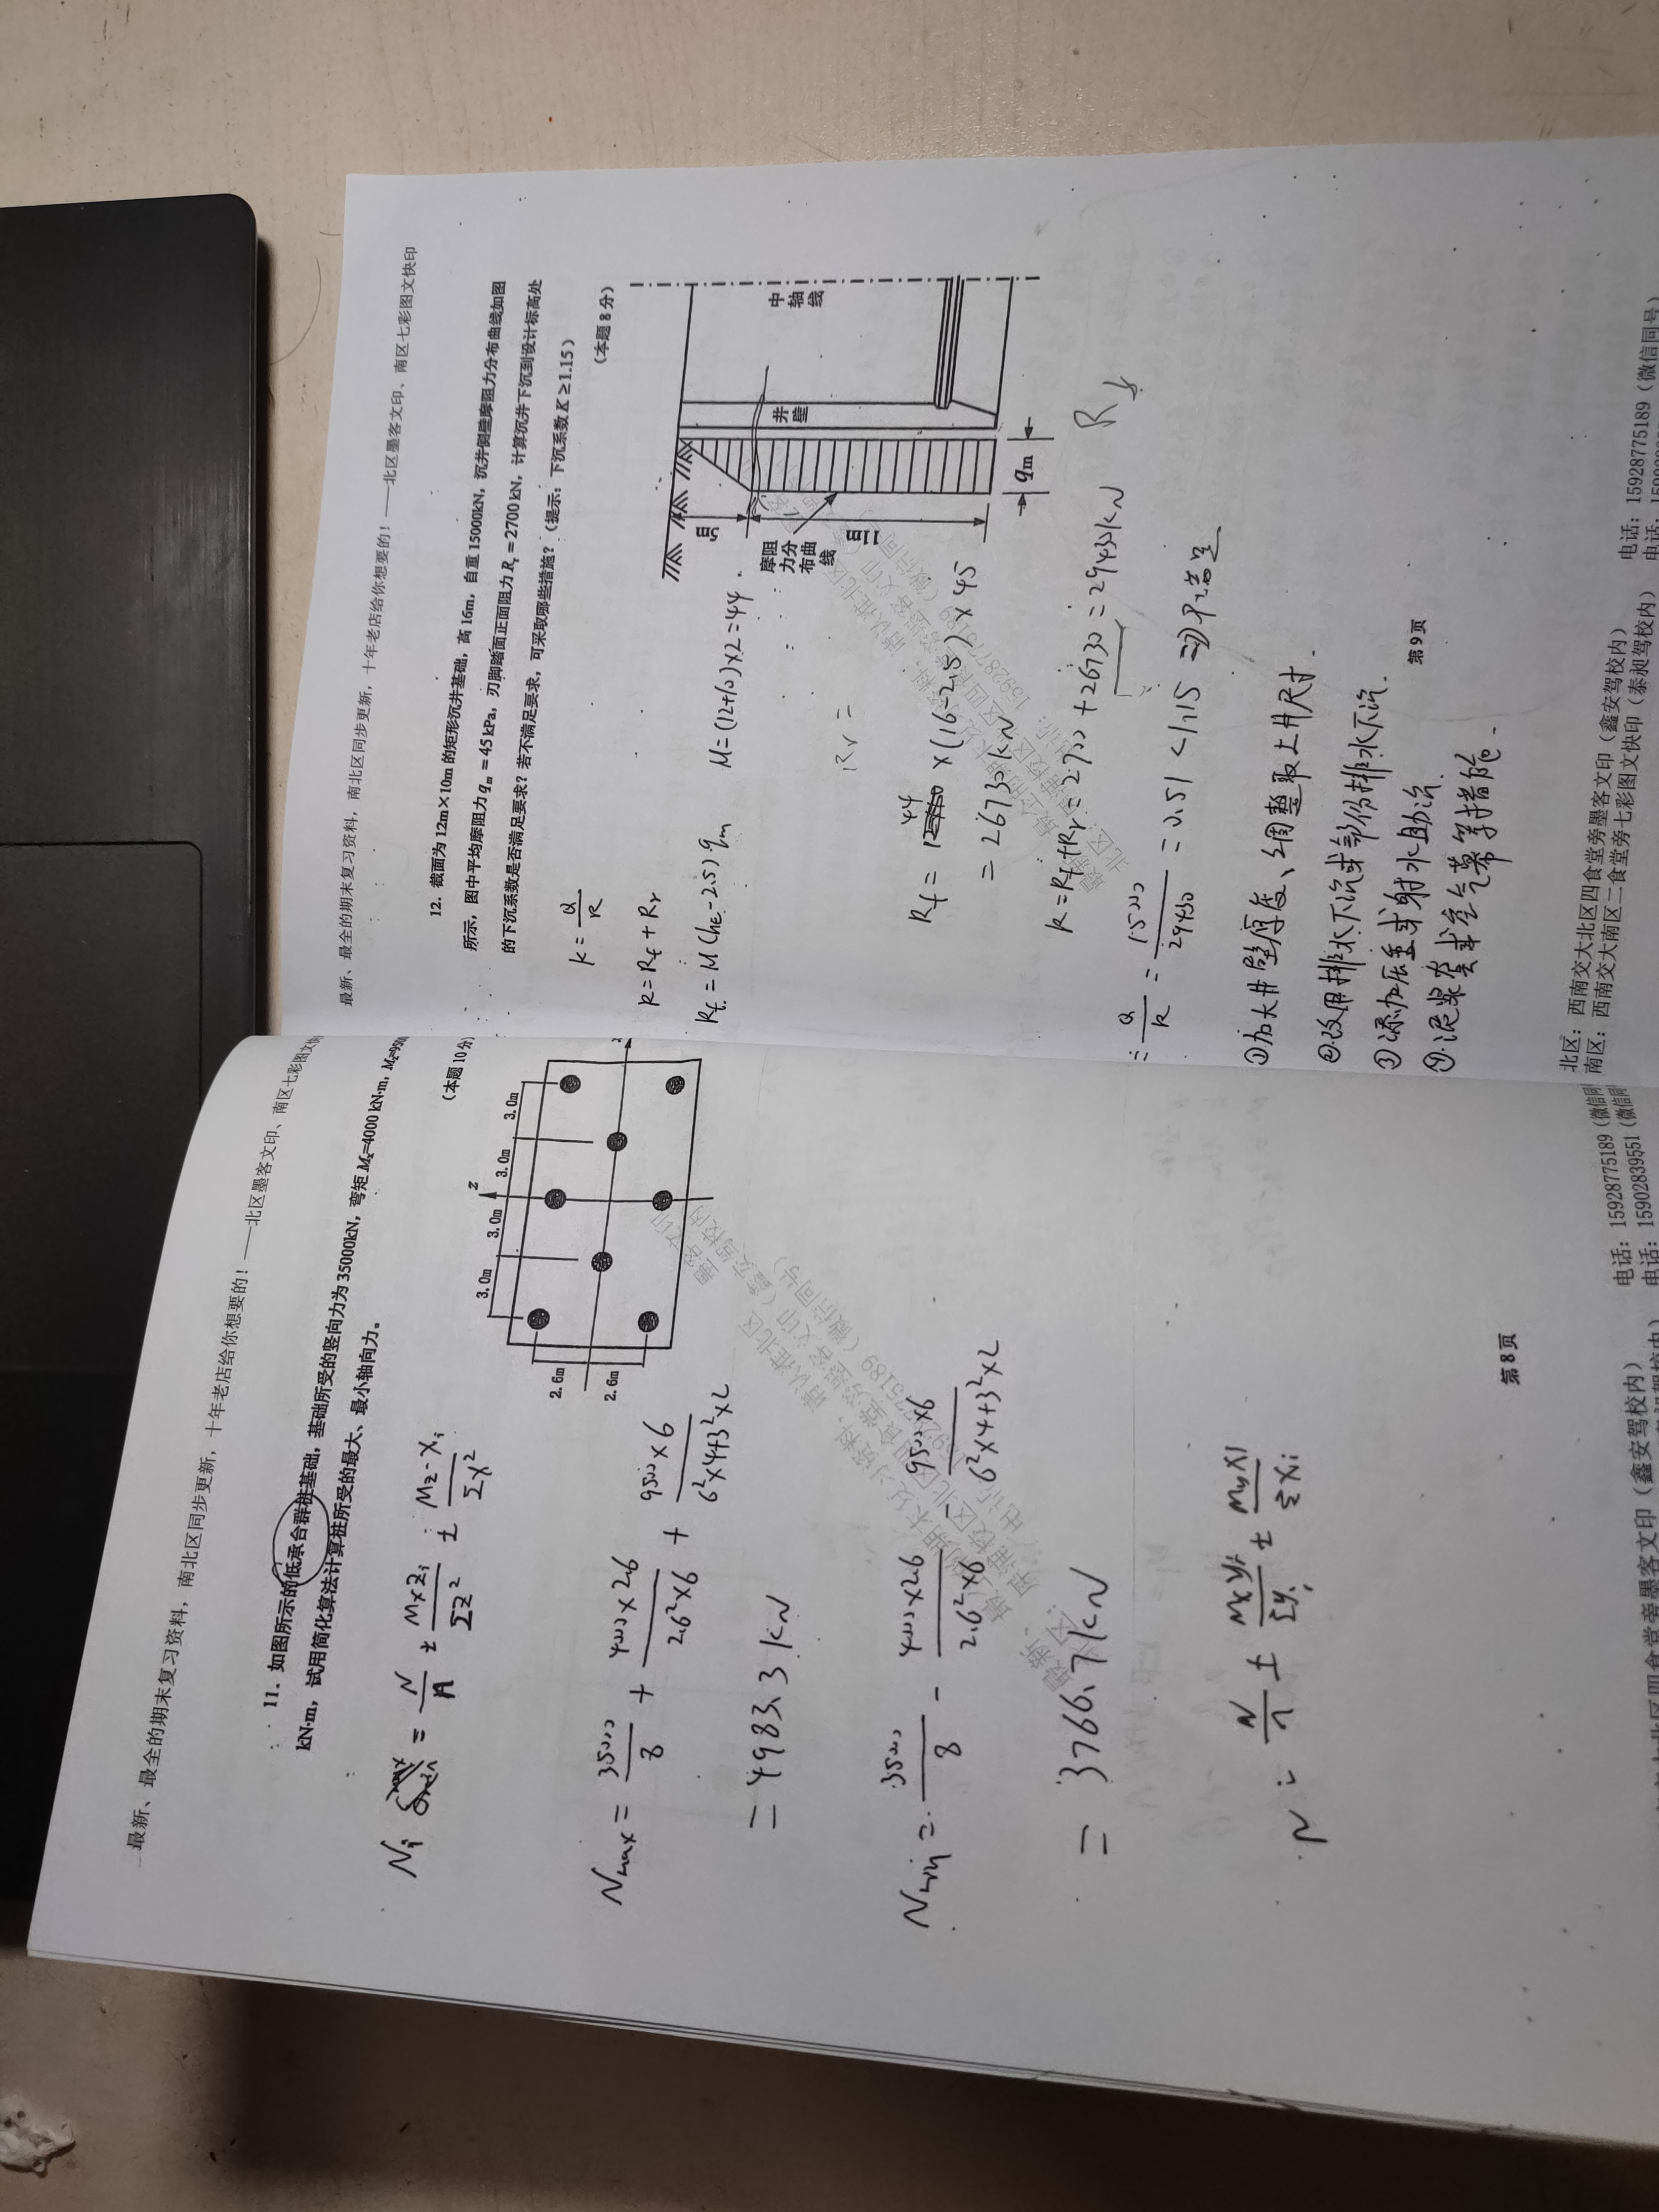 最新、最全的期末复习资料，南北区同步更新，十年老店给你想要的！——北区墨客文印、南区七彩图文快印
11. 如图所示的低承台群桩基础，基础所受的竖向力为 35000kN，弯矩 Mx=4000 kN·m，Mz=950
kN·m，试用简化算法计算桩所受的最大、最小轴向力。
（本题 10 分）
3.0m 3.0m 3.0m 3.0m
z
2.6m
2.6m
Ni = N/n ± MxZi/ΣZ² ± Mz-Xi/Σx²
Nmax = 35000/8 + 4000×2.6/2.6²×6 + 9500×6/6²×4+3²×2
= 4983.3 kN
Nmin = 35000/8 - 4000×2.6/2.6²×6 - 9500×6/6²×4+3²×2
= 3766.7 kN
N = N/n ± Mxyi/Σyi ± MyXi/ΣXi
第 8 页
电话：15928775189（微信同
电话：15902839551（微信
最新、最全的期末复习资料，南北区同步更新，十年老店给你想要的！——北区墨客文印、南区七彩图文快印
12. 截面为 12m×10m 的矩形沉井基础，高 16m，自重 15000kN，沉井侧壁摩阻力分布曲线如图
所示，图中平均摩阻力 qm = 45 kPa，刃脚踏面正面阻力 Rr = 2700 kN，计算沉井下沉到设计标高处
的下沉系数是否满足要求？若不满足要求，可采取哪些措施？（提示：下沉系数 K ≥ 1.15）
（本题 8 分）
K = Q/R
R = Rf + Rr
Rf = M(hE-2.5)qm M=(12+10)×2=44
Rr =
井壁
中轴线
5m
11m
摩阻力分布曲线
qm
Rf = 44×(16-2.5)×45
= 26730 kN
R = Rf+Rr = 2700 + 26730 = 29430 kN
= Q/R = 15000/29430 = 0.51 < 1.15 ⇒ 不满足
①加大井壁厚度、调整取土井尺寸.
②改用排水下沉或部份排水下沉.
③添加压重或射水助沉.
④泥浆套或空气幕等措施.
第 9 页
北区：西南交大北区四食堂旁墨客文印（鑫安驾校内） 电话：15928775189（微信同号）
南区：西南交大南区二食堂旁七彩图文快印（泰昶驾校内）